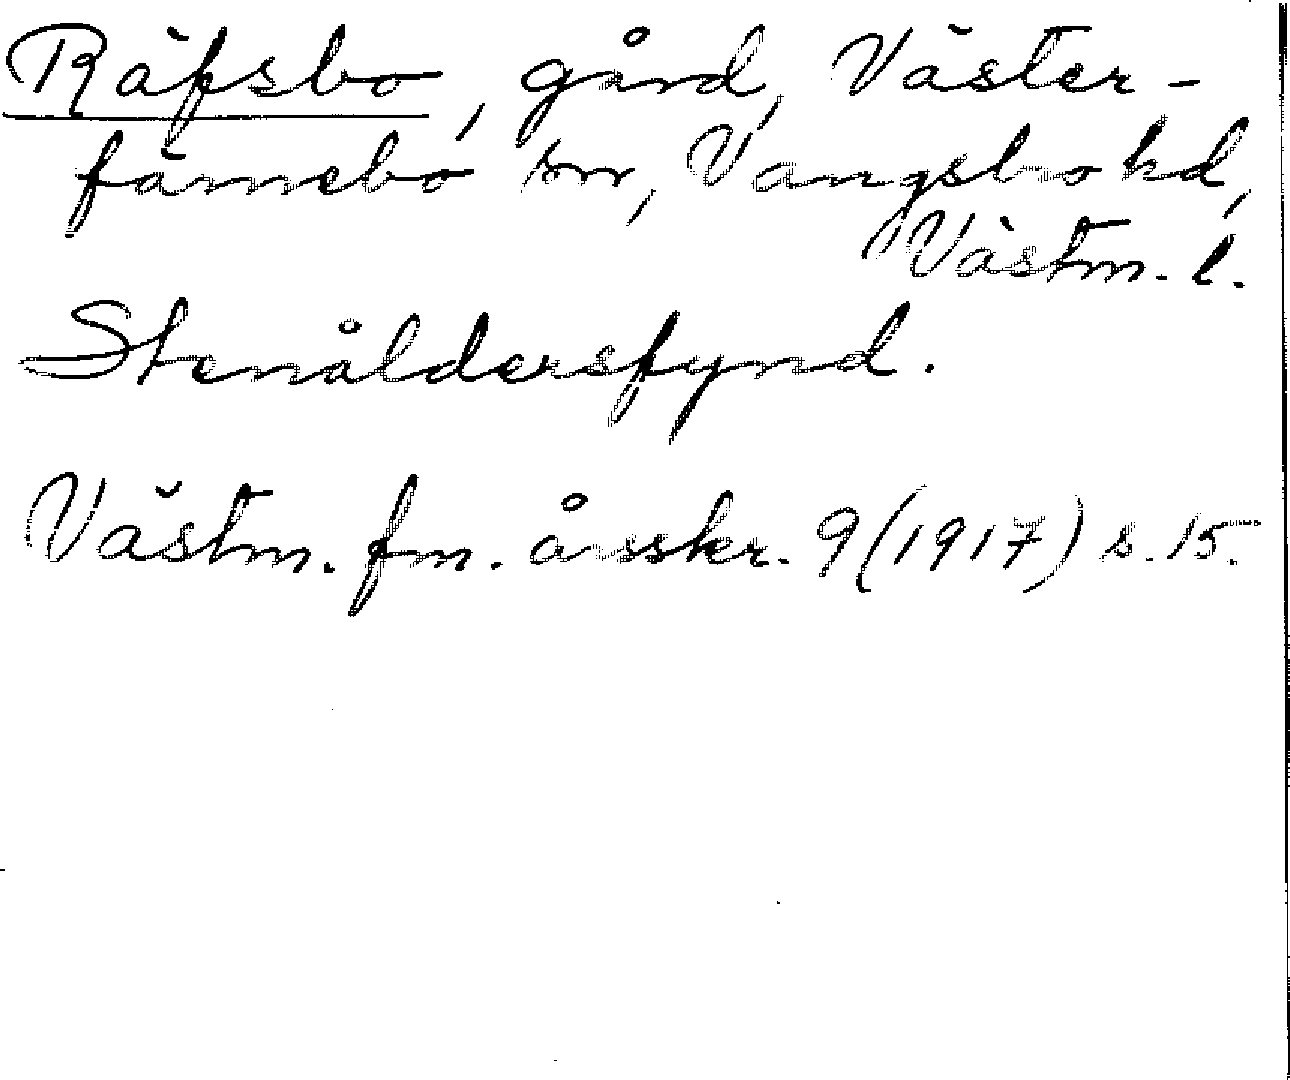 Räfsbo, gård, Väster-
färnebo sn, Vangsbro hd,
Västm. l.
Stenåldersfynd.
Västm. fm. årsskr. 9 (1917) s. 15.